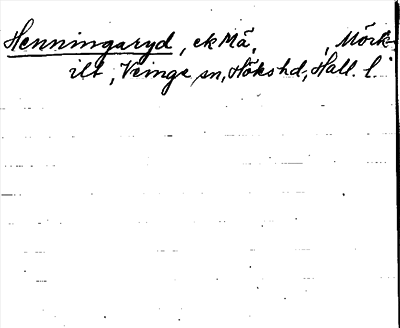 Henningaryd, ek Må, , Mörk-
ilt, Veinge sn, Höks hd, Hall. l.